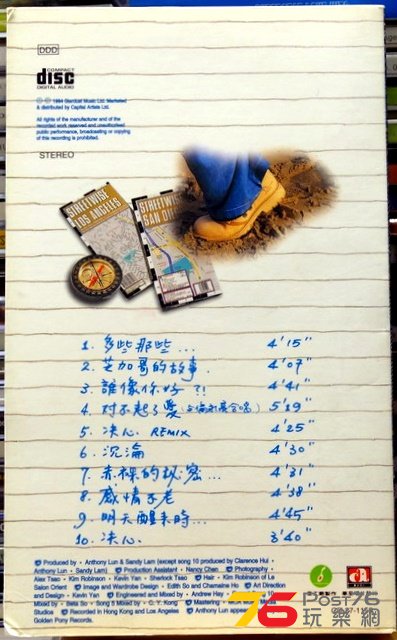 DDD
COMPACT
disc
DIGITAL AUDIO
1994 Stardust Music Ltd. Marketed
& distributed by Capital Artists Ltd.
All rights of the manufacturer and of the
recorded work reserved and unauthorised
public performance, broadcasting or copying
of this recording is prohibited.
STEREO
STREETWISE
LOS ANGELES
STREETWISE
SAN
1. 多些那些... 4'15"
2. 芝加哥的故事. 4'07"
3. 誰像你好?! 4'41"
4. 对不起了愛 5'19
5. 决心 REMIX 4'25
6. 沉淪 4'30"
7. 赤裸的秘密... 4'31"
8. 感情不老 4'38"
9. 明天醒來時... 4'45"
10. 决心 3'40"
Produced by • Anthony Lun & Sandy Lam (except song 10 produced by Clarence Hui
Anthony Lun • Sandy Lam) Production Assistant • Nancy Chen Photography
Alex Tsao • Kim Robinson • Kevin Yan • Sherlock Tsao Hair • Kim Robinson of Le
Salon Orient Image and Wardrobe Design • Edith So and Charmaine Ho Art Direction
and Design • Kevin Yan Engineered and Mixed by • Andrew Hay 10
Mixed by • Beta So Song 5 Mixed by • C. Y. Kong Mastering
Studios Recorded in Hong Kong and Los Angeles Anthony Lun appears
Golden Pony Records.
76
Post76
玩樂網